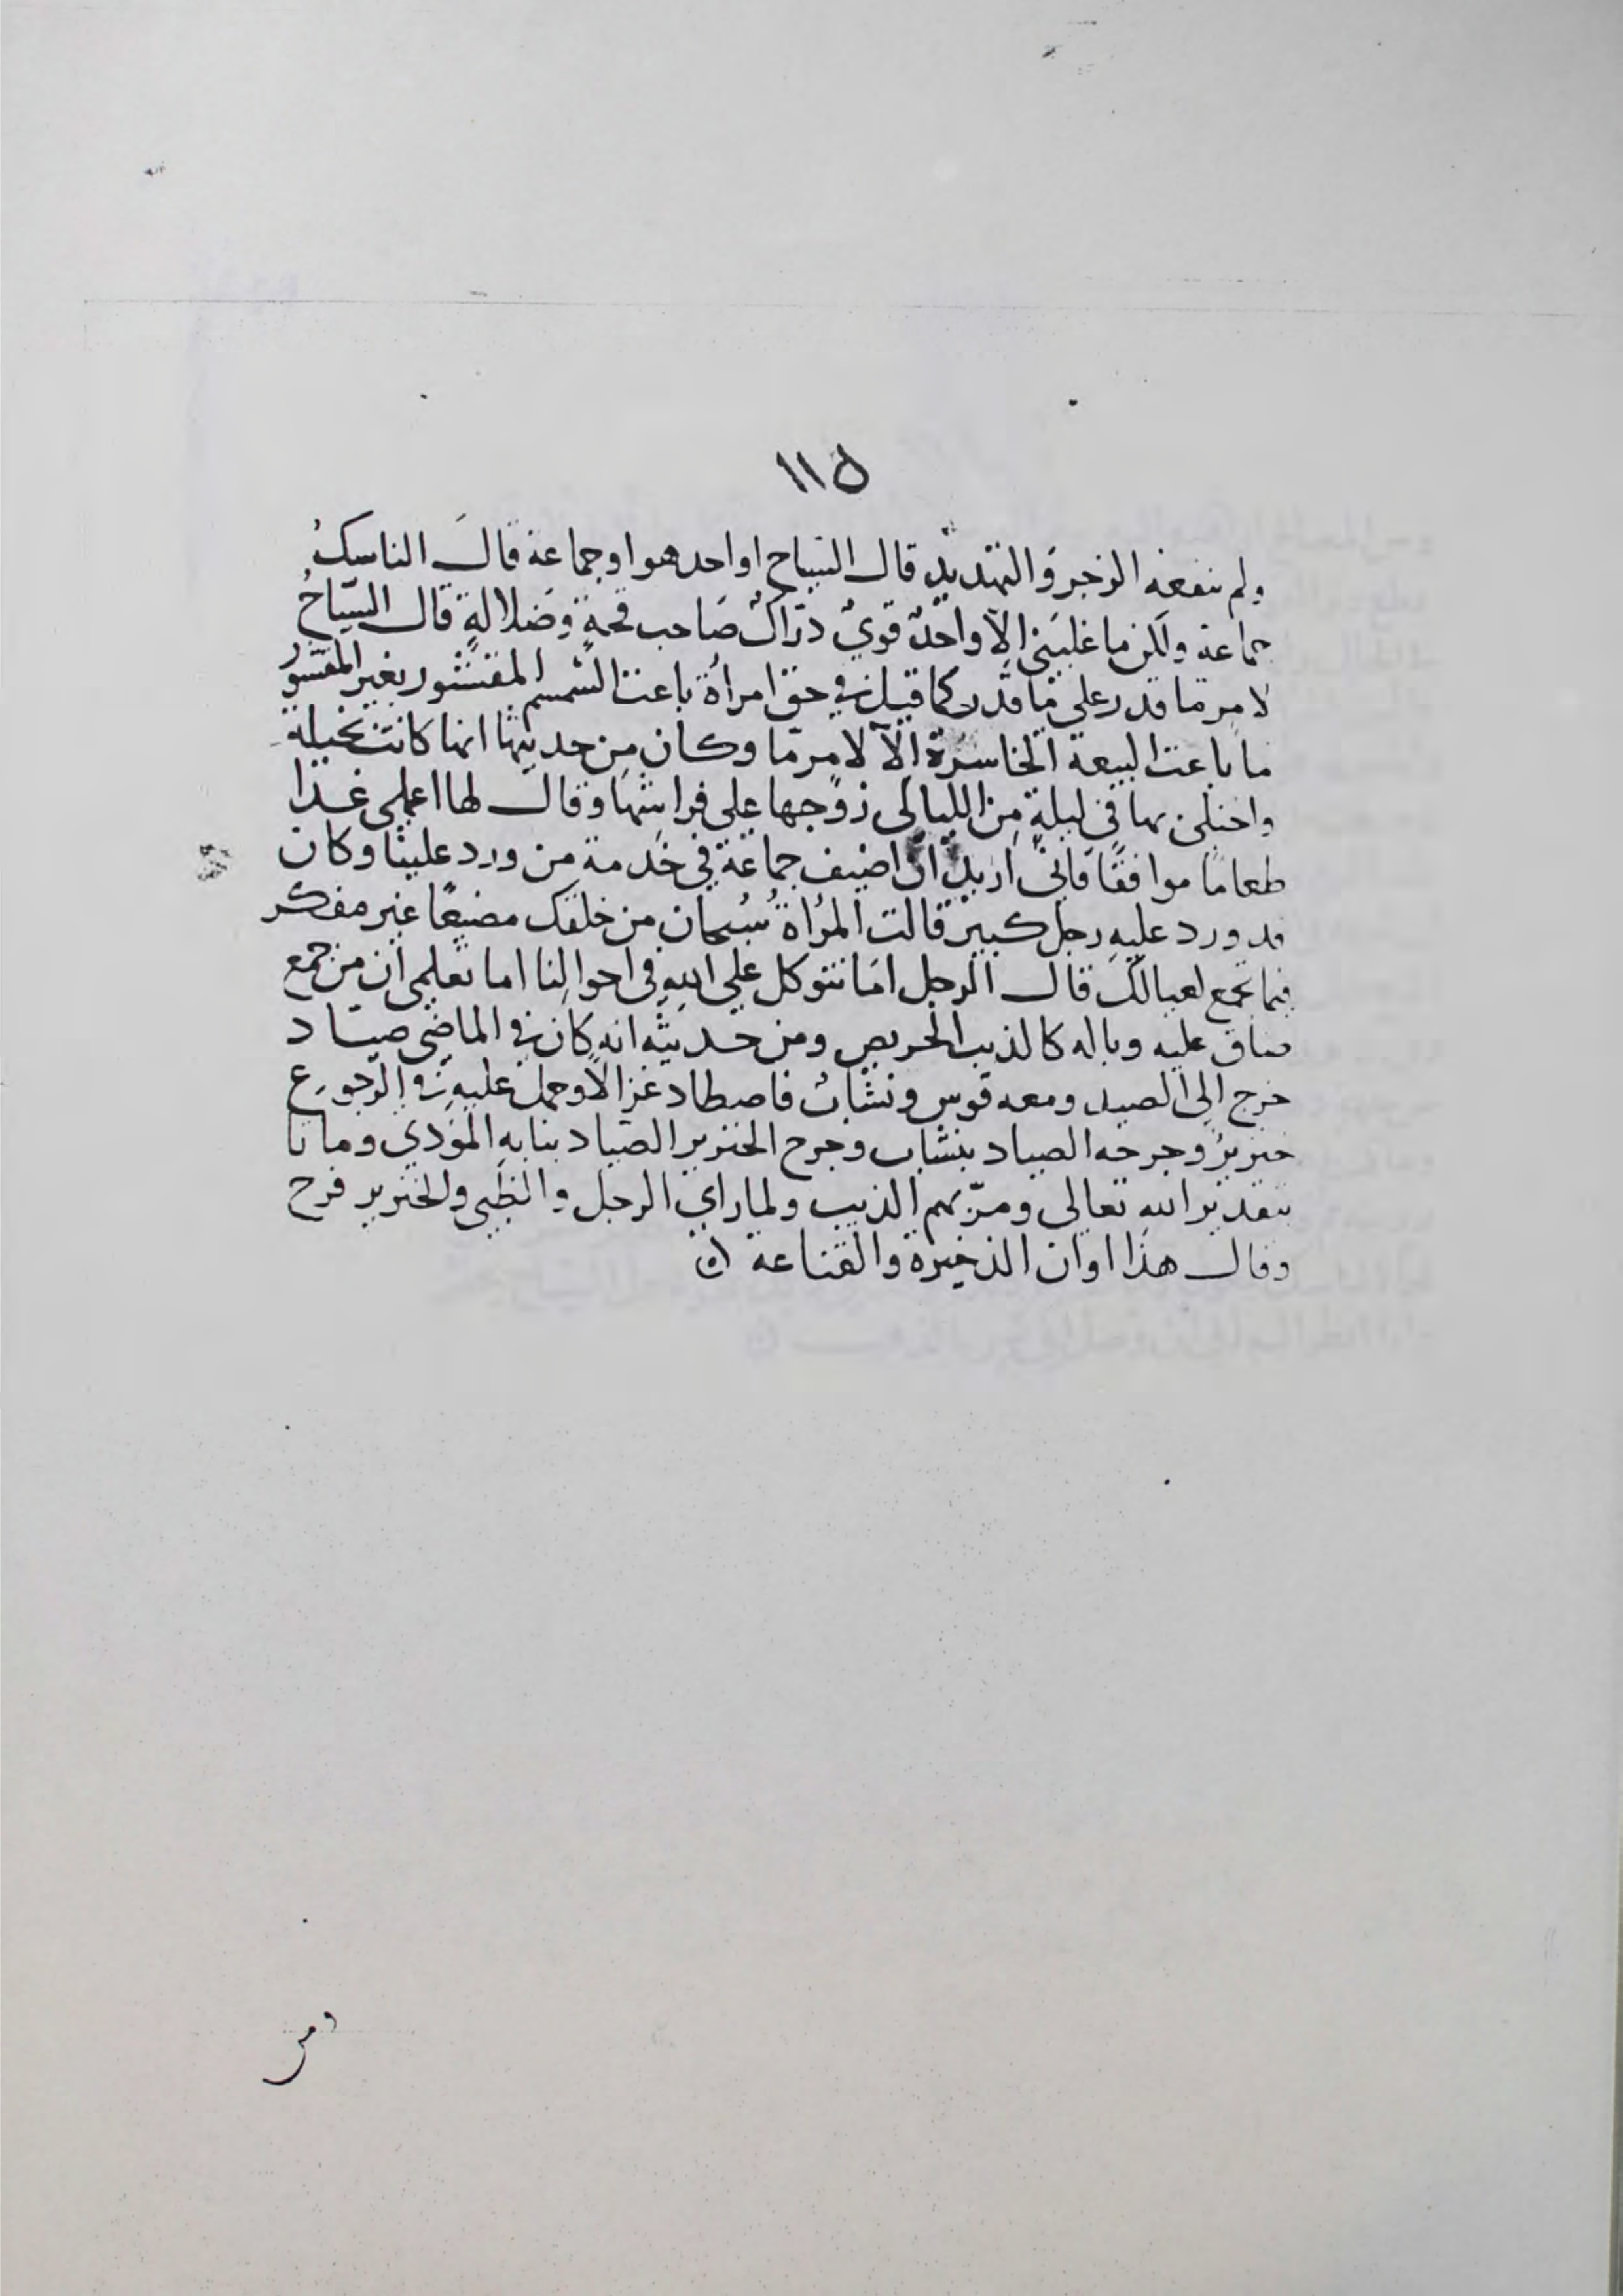 ١١٥
ولم ينفعه الزجر والتهديد قال السياح او احد هو او جماعة قالَ الناسكُ
جماعة ولكن ما غلبني الّا واحدٌ قويٌ درّاكٌ صَاحب قحةٍ وضلالةٍ قال السّياحُ
لامر ما قدر على ما قدر كما قيل في حق امرأة باعت السمسم المقشور بغير المقشور
ما باعت البيعة الخاسرة الّا لامرٍ مّا وكان من حديثها انها كانت بخيلة
واختلى بها في ليلةٍ من الليالى زوجها على فراشها وقال لها اعملى غدا
طعامًا موافقًا فانى اريدُ ان اضيف جماعة في خدمة من ورد علينا وكان
قد ورد عليه رجل كبير قالت المرأة سُبحان من خلقك مضيعًا غير مفكر
فيما تجمع لعيالك قال الرجل امَا نتوكل على اللهِ فى احوالنا اما تعلمى ان من جمع
ضاق عليه وباله كالذيب الحريص ومن حديثه انه كان في الماضى صياد
خرج الى الصيد ومعه قوس ونشّابٌ فاصطاد غزالًا وحمل عليه في الرجوع
خنزيرٌ وجرحه الصياد بنشاب وجرح الخنزير الصيّاد بنابه المؤذي وماتا
بتقدير الله تعالى ومرّ بهم الذيب ولما راي الرجل والظبى والخنزير فرح
وقال هذا اوان الذخيرة والقناعة